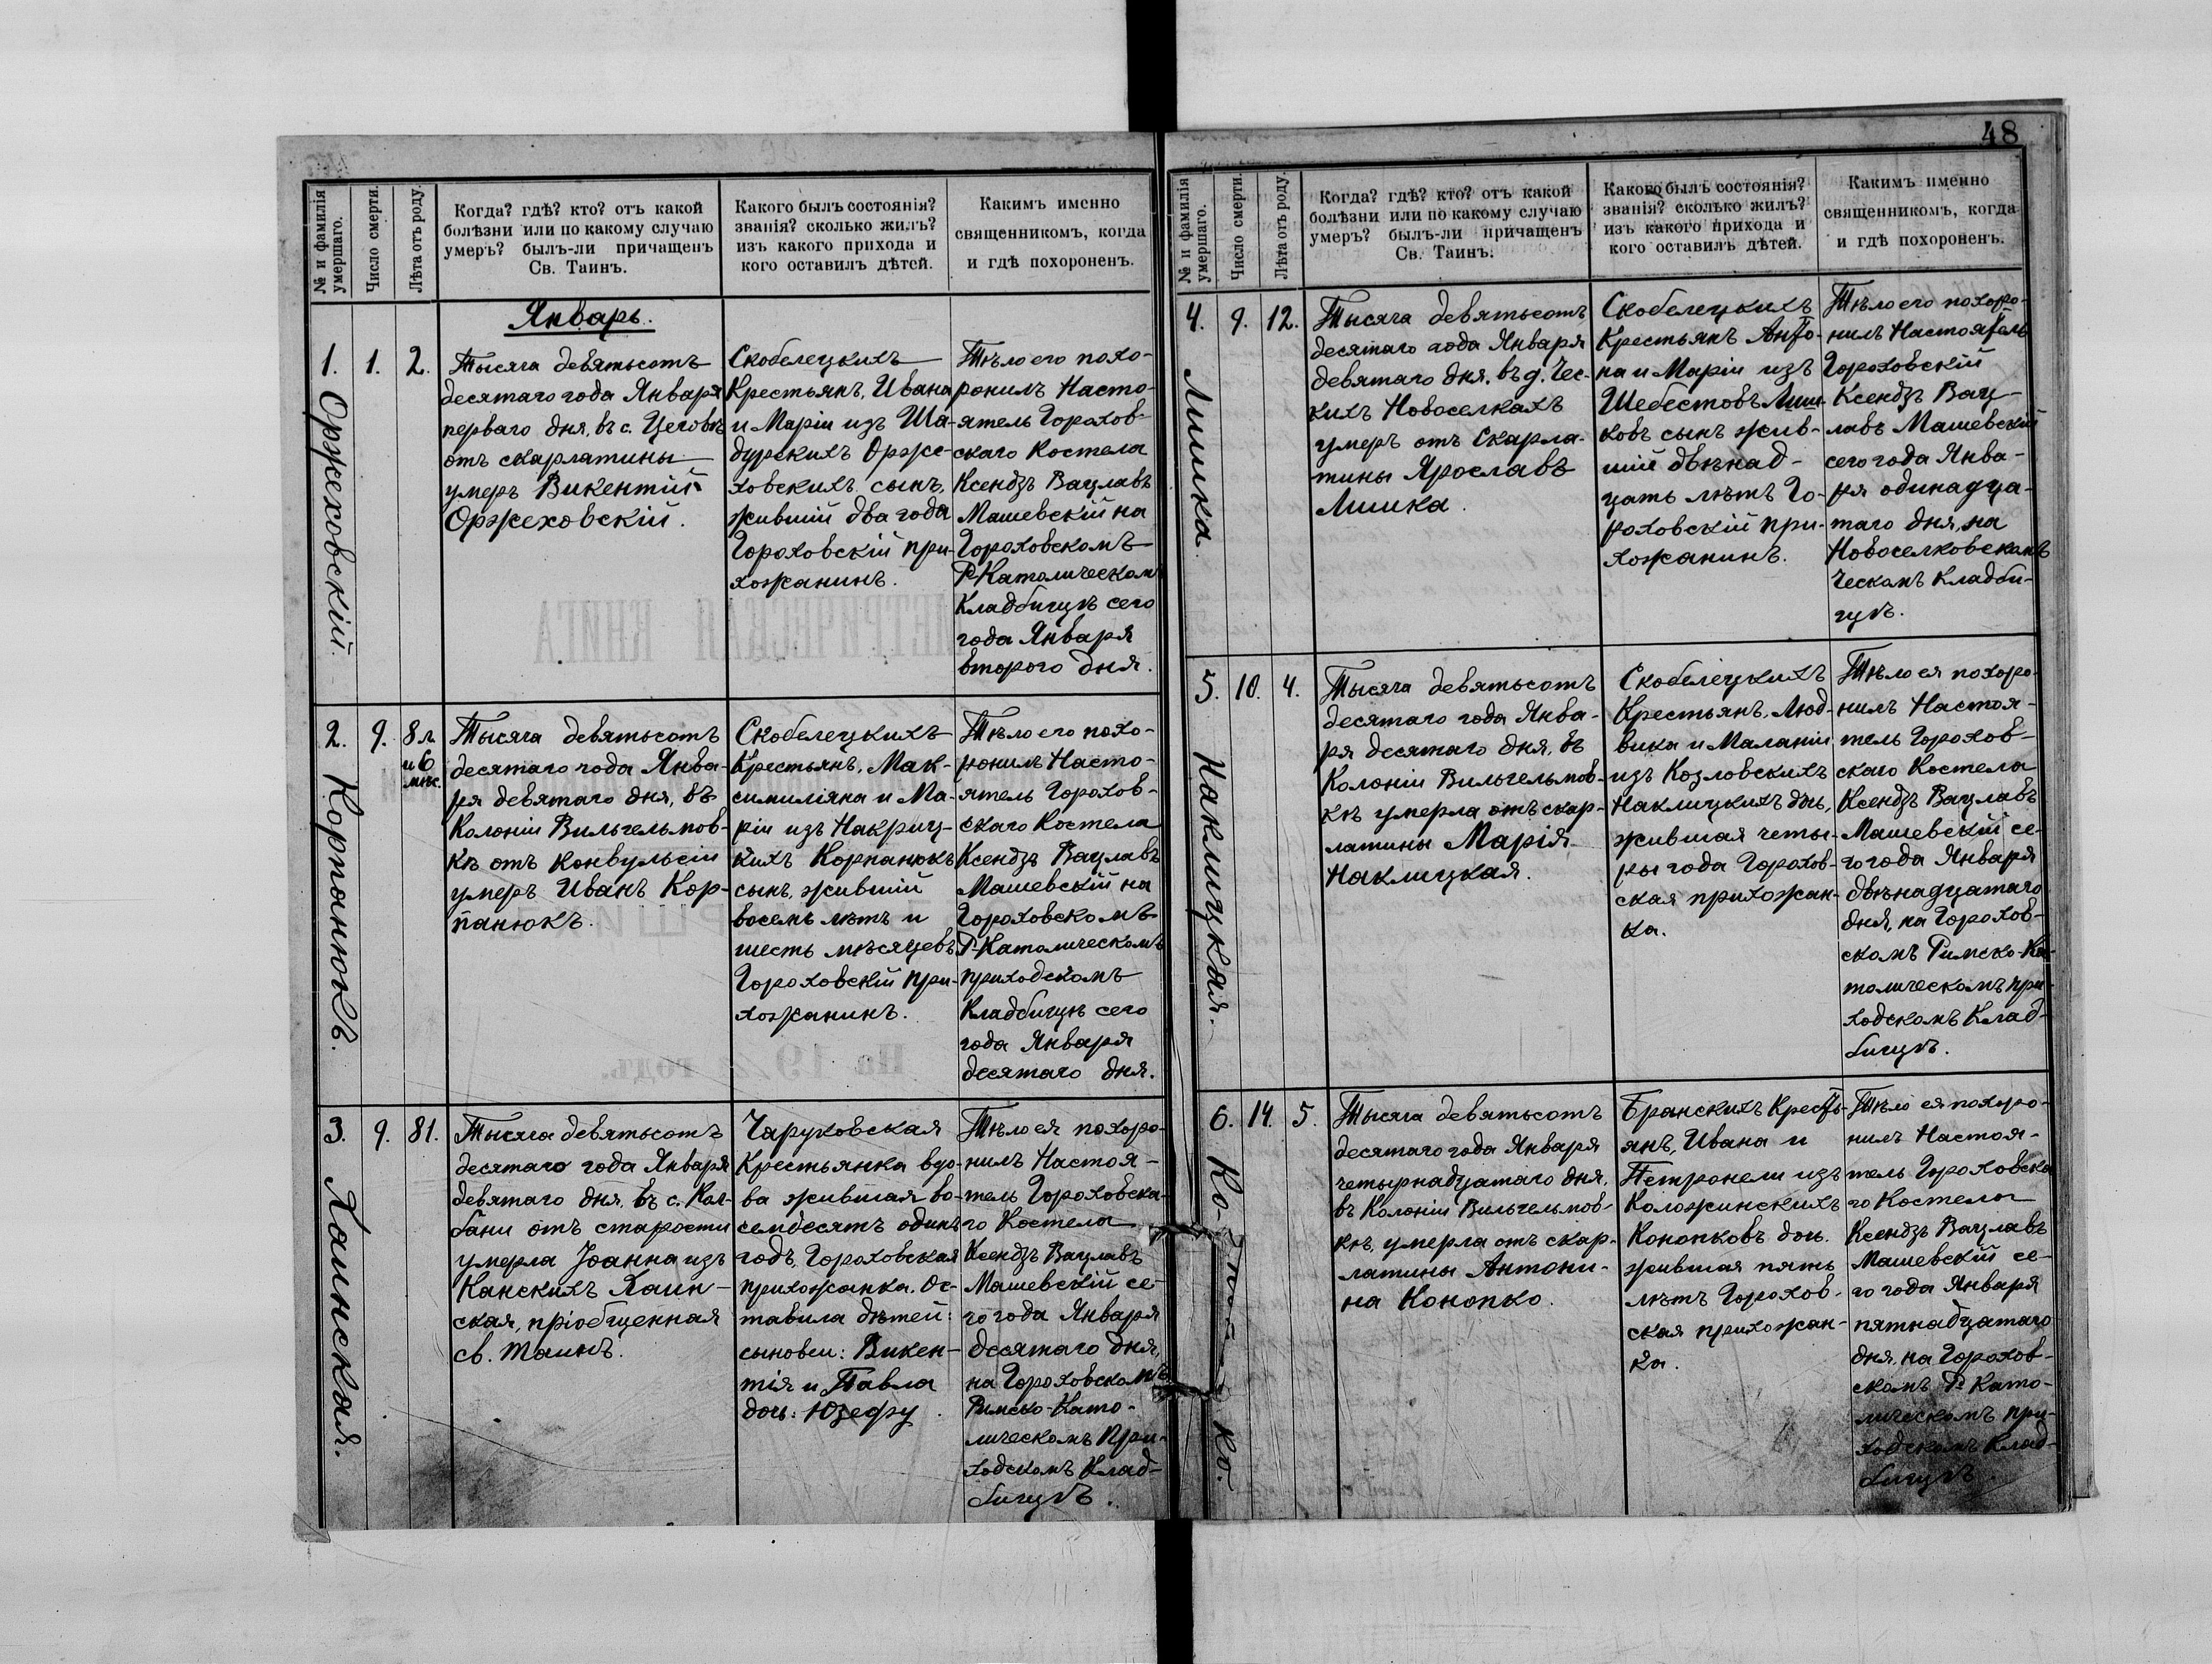 № и фамилія умершаго.
Число смерти.
Лѣта отъ роду.
Когда? гдѣ? кто? отъ какой
болѣзни или по какому случаю
умеръ? былъ-ли причащенъ
Св. Таинъ.
Какого былъ состоянія?
званія? сколько жилъ?
изъ какого прихода и
кого оставилъ дѣтей.
Какимъ именно
священникомъ, когда
и гдѣ похороненъ.
Январь.
1.
Оржеховскій.
1.
2.
Тысяча девятьсотъ
десятаго года Января
перваго дня, въ с. Цеговѣ
отъ скарлатины
умеръ Викентій
Оржеховскій.
Скобелецкихъ
Крестьянъ, Ивана
и Маріи изъ Ша-
дурскихъ Орже-
ховскихъ сынъ,
жившій два года
Гороховскій при-
хожанинъ.
Тѣло его похо-
ронилъ Насто-
ятель Горохов-
скаго Костела
Ксендзъ Вацлавъ
Машевскій на
Гороховскомъ
Р-Католическом
Кладбищѣ сего
года Января
второго дня.
2.
Корпанюкъ.
9.
8 л.
и 6
мѣс.
Тысяча девятьсотъ
десятаго года Янва-
ря девятаго дня, въ
Колоніи Вильгельмов-
кѣ отъ конвульсіи
умеръ Иванъ Кор-
панюкъ.
Скобелецкихъ
Крестьянъ, Мак-
симиліяна и Ма-
ріи изъ Накриц-
кихъ Корпанюкъ
сынъ, жившій
восемь лѣтъ и
шесть мѣсяцевъ
Гороховскій при-
хожанинъ.
Тѣло его похо-
ронилъ Насто-
ятель Горохов-
скаго Костела
Ксендзъ Вацлавъ
Машевскій на
Гороховскомъ
Р-Католическомъ
приходскомъ
Кладбищѣ сего
года Января
десятаго дня.
3.
Хаинская.
9.
81.
Тысяча девятьсотъ
десятаго года Января
девятаго дня, въ с. Кол-
бани отъ старости
умерла Іоанна изъ
Канскихъ Хаин-
ская, пріобщенная
св. Таинъ.
Чаруковская
Крестьянка вдо-
ва жившая во-
семдесятъ одинъ
годъ, Гороховская
прихожанка. Ос-
тавила дѣтей:
сыновеи: Викен-
тія и Павла
дочь: Юзефу.
Тѣло ея похоро-
нилъ Настоя-
тель Гороховска-
го Костела
Ксендзъ Вацлавъ
Машевскій се-
го года Января
десятаго дня,
на Гороховскомъ
Римско-Като-
лическомъ При-
ходскомъ Клад-
бищѣ.
48
№ и фамилія умершаго.
Число смерти.
Лѣта отъ роду.
Когда? гдѣ? кто? отъ какой
болѣзни или по какому случаю
умеръ? былъ-ли причащенъ
Св. Таинъ.
Какого былъ состоянія?
званія? сколько жилъ?
изъ какого прихода и
кого оставилъ дѣтей.
Какимъ именно
священникомъ, когда
и гдѣ похороненъ.
4.
Лишка.
9.
12.
Тысяча девятьсотъ
десятаго года Января
девятаго дня, въ д. Чес-
кихъ Новоселкахъ
умеръ отъ скарла-
тины Ярославъ
Лишка.
Скобелецкихъ
Крестьянъ Анто-
на и Маріи изъ
Шебестовъ Лиш-
ковъ сынъ жив-
шій двѣнад-
цать лѣтъ Го-
роховскій при-
хожанинъ.
Тѣло его похоро-
нилъ Настоятель
Гороховскій
Ксендзъ Вац-
лавъ Машевскій
сего года Янва-
ря одинадца-
таго дня, на
Новоселковскомъ
Ческомъ Кладби-
щѣ.
5.
Наклицкая.
10.
4.
Тысяча девятьсотъ
десятаго года Янва-
ря десятаго дня, въ
Колоніи Вильгельмов-
кѣ умерла отъ скар-
латины Марія
Наклицкая.
Скобелецкихъ
Крестьянъ, Люд-
вика и Маланіи
изъ Козловскихъ
Наклицкихъ дочь,
жившая четы-
ры года Горохов-
ская прихожан-
ка.
Тѣло ея похоро-
нилъ Настоя-
тель Горохов-
скаго Костела
Ксендзъ Вацлавъ
Машевскій се-
го года Января
двѣнадцатаго
дня, на Горохов-
скомъ Римско-Ка-
толическомъ при-
ходскомъ Клад-
бищѣ.
6.
14.
5.
Тысяча девятьсотъ
десятаго года Января
четырнадцатаго дня,
въ Колоніи Вильгельмов-
кѣ, умерла отъ скар-
латины Антони-
на Конопко.
Бранскихъ Кресть-
янъ, Ивана и
Петронели изъ
Коложинскихъ
Конопковъ дочь.
жившая пять
лѣтъ Горохов-
ская прихожан-
ка.
Тѣло ея похоро-
нилъ Настоя-
тель Гороховска
го Костела
Ксендзъ Вацлавъ
Машевскій се-
го года Января
пятнадцатаго
дня, на Горохов-
скомъ Р. Като-
лическомъ при-
ходскомъ Клад-
бищѣ.